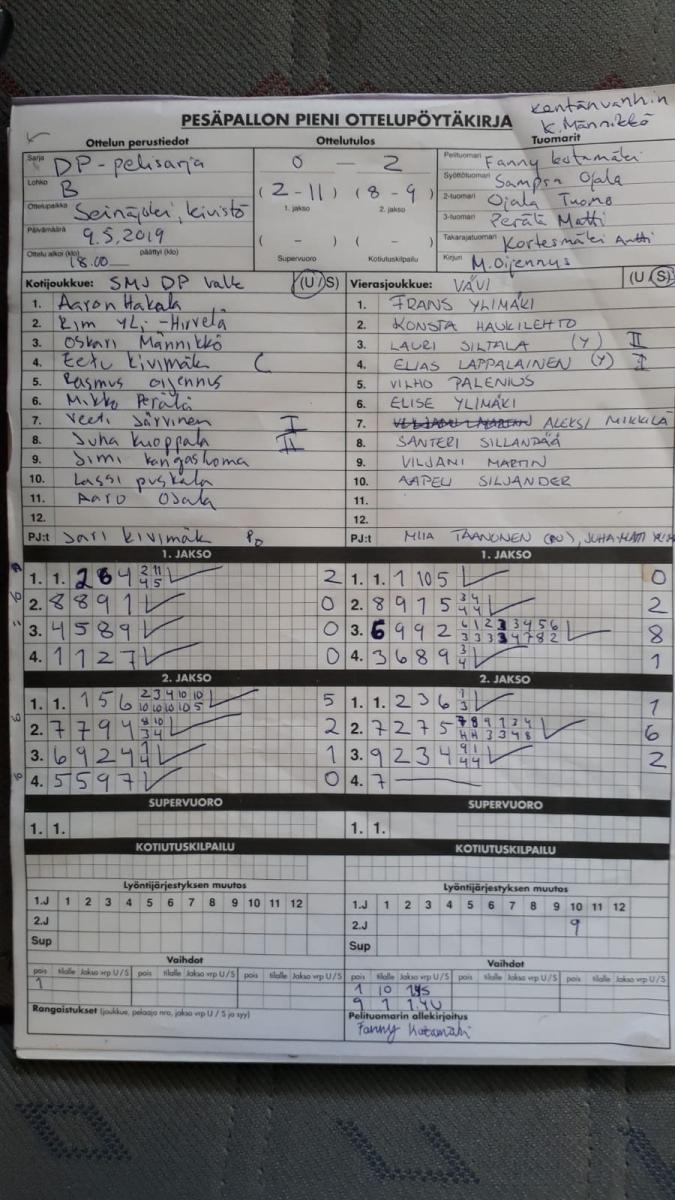 kentänvanhin
K. Männikkö
PESÄPALLON PIENI OTTELUPÖYTÄKIRJA
Ottelun perustiedot Ottelutulos Tuomarit
Sarja DP-pelisarja 0 — 2 Pelituomari Fanny
Lohko B (2-11) (8-9) Syöttötuomari Sampsa Ojala
1. jakso 2. jakso
Ottelupaikka Seinäjoki, kivistö 2-tuomari Ojala Tuomo
Päivämäärä 9.5.2019 ( - ) ( - ) 3-tuomari Perätä Matti
Ottelu alkoi (klo) 18.00 päättyi (klo) Supervuoro Kotiutuskilpailu Takarajatuomari Kortesmäki Antti
Kirjuri M.Oijennys
Kotijoukkue: SMJ DP Valk (U/S) Vierasjoukkue: VÄVI (U/S)
1. Aaron Hakala 1. FRANS YLIMÄKI
2. Kim YLi-Hirvelä 2. KONSTA HAUKILEHTO
3. Oskari Männikkö 3. LAURI SILTALA (Y) II
4. Eetu kivimäk C 4. ELIAS LAPPALAINEN (Y) I
5. Rasmus oijennus 5. VILHO PALENIUS
6. Mikko Perälä 6. ELISE YLIMÄKI
7. Veeti Järvinen I 7. ALEKSI MIKKILÄ
8. Juha kuoppala II 8. SANTERI SILLANPÄÄ
9. Jimi kangasluoma 9. VILJAMI MARTIN
10. Lassi puskala 10. AAPELI SILJANDER
11. Aaro Ojala 11.
12. 12.
PJ:t Jari kivimäk PJ:t MIIA TAANONEN (PU), JUHA-MATTI
1. JAKSO 1. JAKSO
1. 1. 2 6 4 2 11 2 1. 1. 1 10 5 0
4 5
2. 8 8 9 1 0 2. 8 9 1 5 3 4 2
4 4
3. 4 5 8 9 0 3. 6 9 9 2 6 1 2 3 3 4 5 6 8
3 3 3 3 4 7 8 2
4. 1 1 2 7 0 4. 3 6 8 9 3 1
4
2. JAKSO 2. JAKSO
1. 1. 1 5 6 2 3 4 10 10 5 1. 1. 2 3 6 1 1
10 10 10 10 5 3
2. 7 7 9 4 8 10 2 2. 7 2 7 5 7 8 9 1 3 4 6
3 4 4 4 3 3 4 8
3. 6 9 2 4 1 1 3. 9 2 3 4 9 1 2
4 4 4
4. 5 5 9 7 0 4. 7
SUPERVUORO SUPERVUORO
1. 1. 1. 1.
KOTIUTUSKILPAILU KOTIUTUSKILPAILU
Lyöntijärjestyksen muutos Lyöntijärjestyksen muutos
1.J 1 2 3 4 5 6 7 8 9 10 11 12 1.J 1 2 3 4 5 6 7 8 9 10 11 12
2.J 2.J 9
Sup Sup
Vaihdot Vaihdot
pois tilalle Jakso vrp U/S pois tilalle Jakso vrp U/S pois tilalle Jakso vrp U/S pois tilalle Jakso vrp U/S pois tilalle Jakso vrp U/S pois tilalle Jakso vrp U/S
1 1 10
9 1 1.4U
Rangaistukset (joukkue, pelaaja nro, jakso vrp U / S ja syy) Pelituomarin allekirjoitus
Fanny